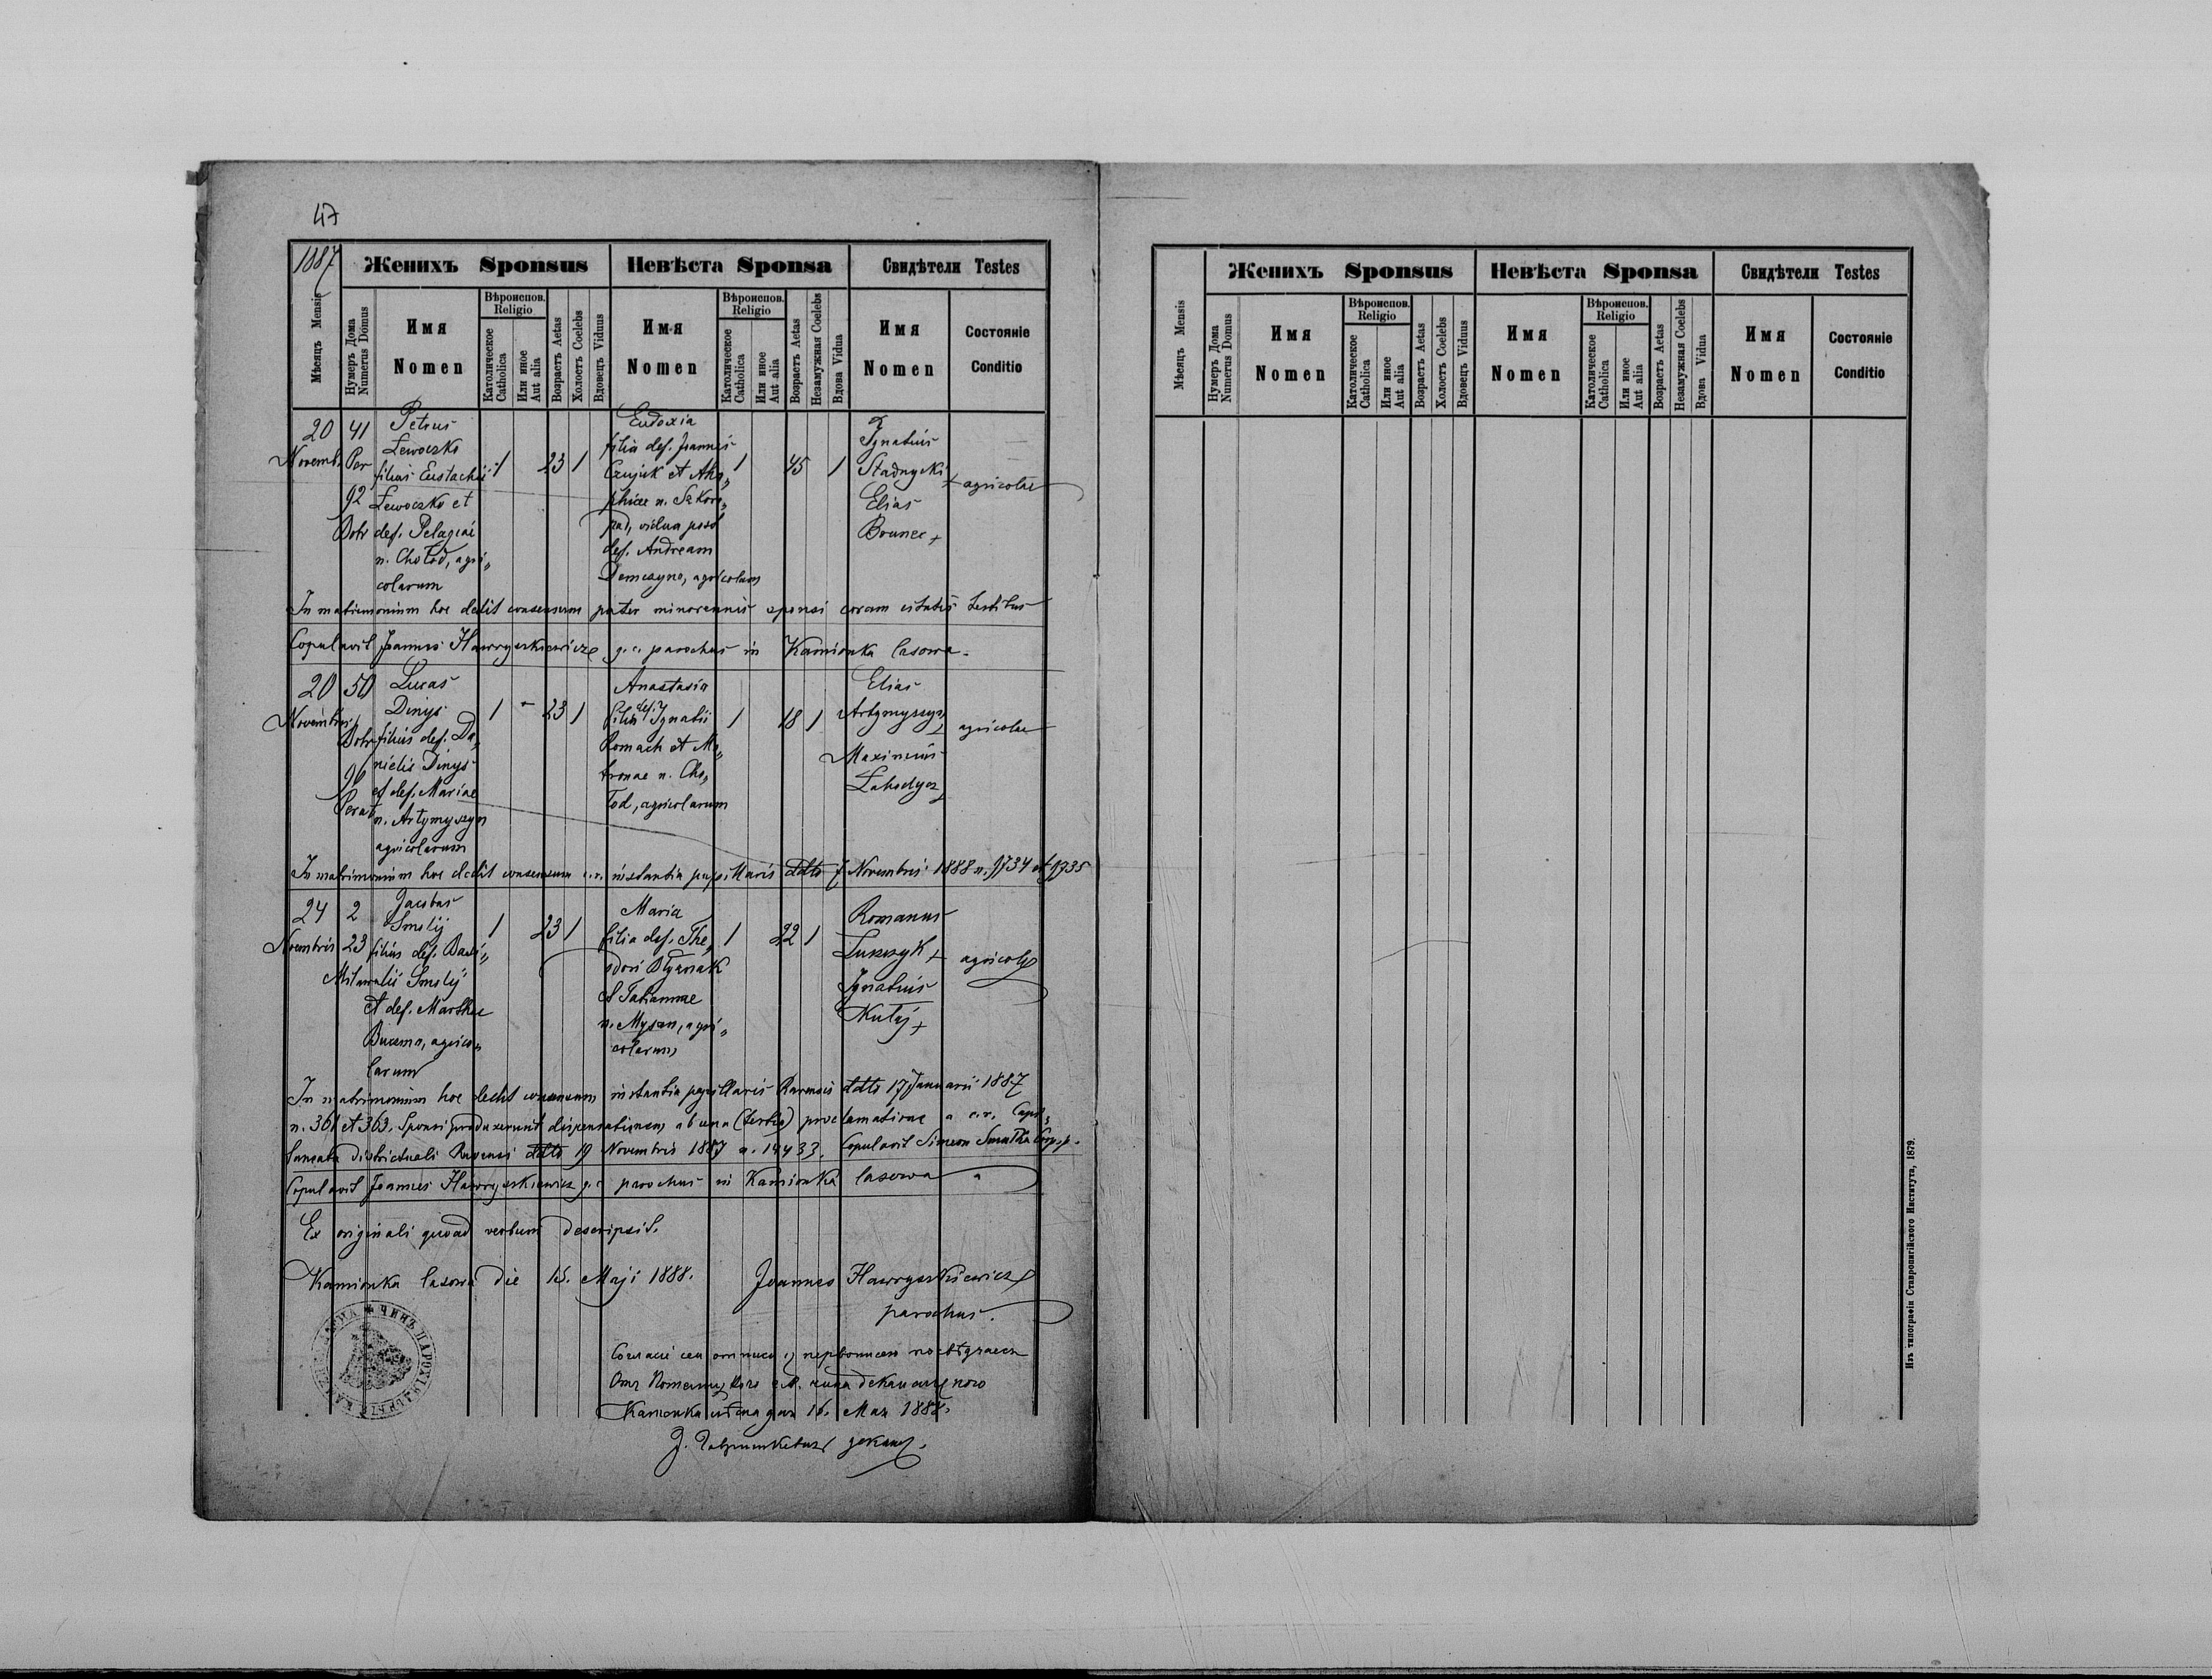 47
1887
Женихъ Sponsus
Невѣста Sponsa
Свидѣтели Testes
Мѣсяцъ Mensis
Нумеръ Дома
Numerus Domus
Имя
Nomen
Вѣроиспов.
Religio
Католическое
Catholica
Или иное
Aut alia
Возрастъ Aetas
Холостъ Coelebs
Вдовецъ Viduus
Имя
Nomen
Вѣроиспов.
Religio
Католическое
Catholica
Или иное
Aut alia
Возрастъ Aetas
Незамужная Coelebs
Вдова Vidua
Имя
Nomen
Состояніе
Conditio
20
Novemb.
41
Per
92
Dobr
Petrus
Lewoczko
filius Eustachii
Lewoczko et
def. Pelagiae
n. Chołod, agri„
colarum
1
23
1
Eudoxia
filia def. Joannis
Czujek et Aha„
phiae n. Szkoro„
pad, vidua post
def. Andream
Demczyna, agricolam
1
45
1
Ignatius
Stadnycki +
Elias
Bounec +
agricolae
In matrimonium hoc dedit consensum pater minorennis sponsi coram citatis testibus
Copulavit Joannes Hawryszkiewicz g. c. parochus in Kamionka lasowa.
20
Novembris
50
Dobr
96
Perat
Lucas
Dinys
filius def. Da„
nielis Dinys
et def. Mariae
n. Artymyszyn
agricolarum
1
-
23
1
Anastasia
filia def. Ignatii
Romach et Ma„
tronae n. Cho„
łod, agricolarum
1
18
1
Elias
Artymyszyn
Maximus
Lahodycz
agricolae
In matrimonium hoc dedit consensum c. r. instantia pupillaris ddto 7 Novembris 1888 n. 9734 et 9735
24
Novembris
2
23
Jacobus
Smolij
filius def. Basi„
lii Smolij
et def. Marthae
Bucema, agrico„
larum
1
23
1
Maria
filia def. The„
odori
et Tatiannae
n. Mysan, agri„
colarum
1
22
1
Romanus
Luszczyk +
Ignatius
Kutij +
agricolae
In matrimonium hoc dedit consensum instantia pupillaris Ravensis ddto 17 Januarii 1887
n. 361 et 363. Sponsi produxerunt dispensationem ab una (tertia) proclamatione a c. r. Capi„
taneatu districtuali Ravensi ddto 19 Novembris 1887 n. 14433. Copulavit Simeon
Copulavit Joannes Hawryszkiewicz g. c. parochus in Kamionka lasowa
Ex originali quoad verbum descripsit.
Kamionka lasowa die 15. Maji 1888.
Joannes Hawryszkiewicz
parochus.
Согласіе сеи отписи съ первописею посвѣдчаеся
Отъ деканального
Каменка лѣсна дня 16. Мая 1888.
І. Гавришкевичъ деканъ.
Женихъ Sponsus
Невѣста Sponsa
Свидѣтели Testes
Мѣсяцъ Mensis
Нумеръ Дома
Numerus Domus
Имя
Nomen
Вѣроиспов.
Religio
Католическое
Catholica
Или иное
Aut alia
Возрастъ Aetas
Холостъ Coelebs
Вдовецъ Viduus
Имя
Nomen
Вѣроиспов.
Religio
Католическое
Catholica
Или иное
Aut alia
Возрастъ Aetas
Незамужная Coelebs
Вдова Vidua
Имя
Nomen
Состояніе
Conditio
Изъ типографіи Ставропигійского Института, 1879.